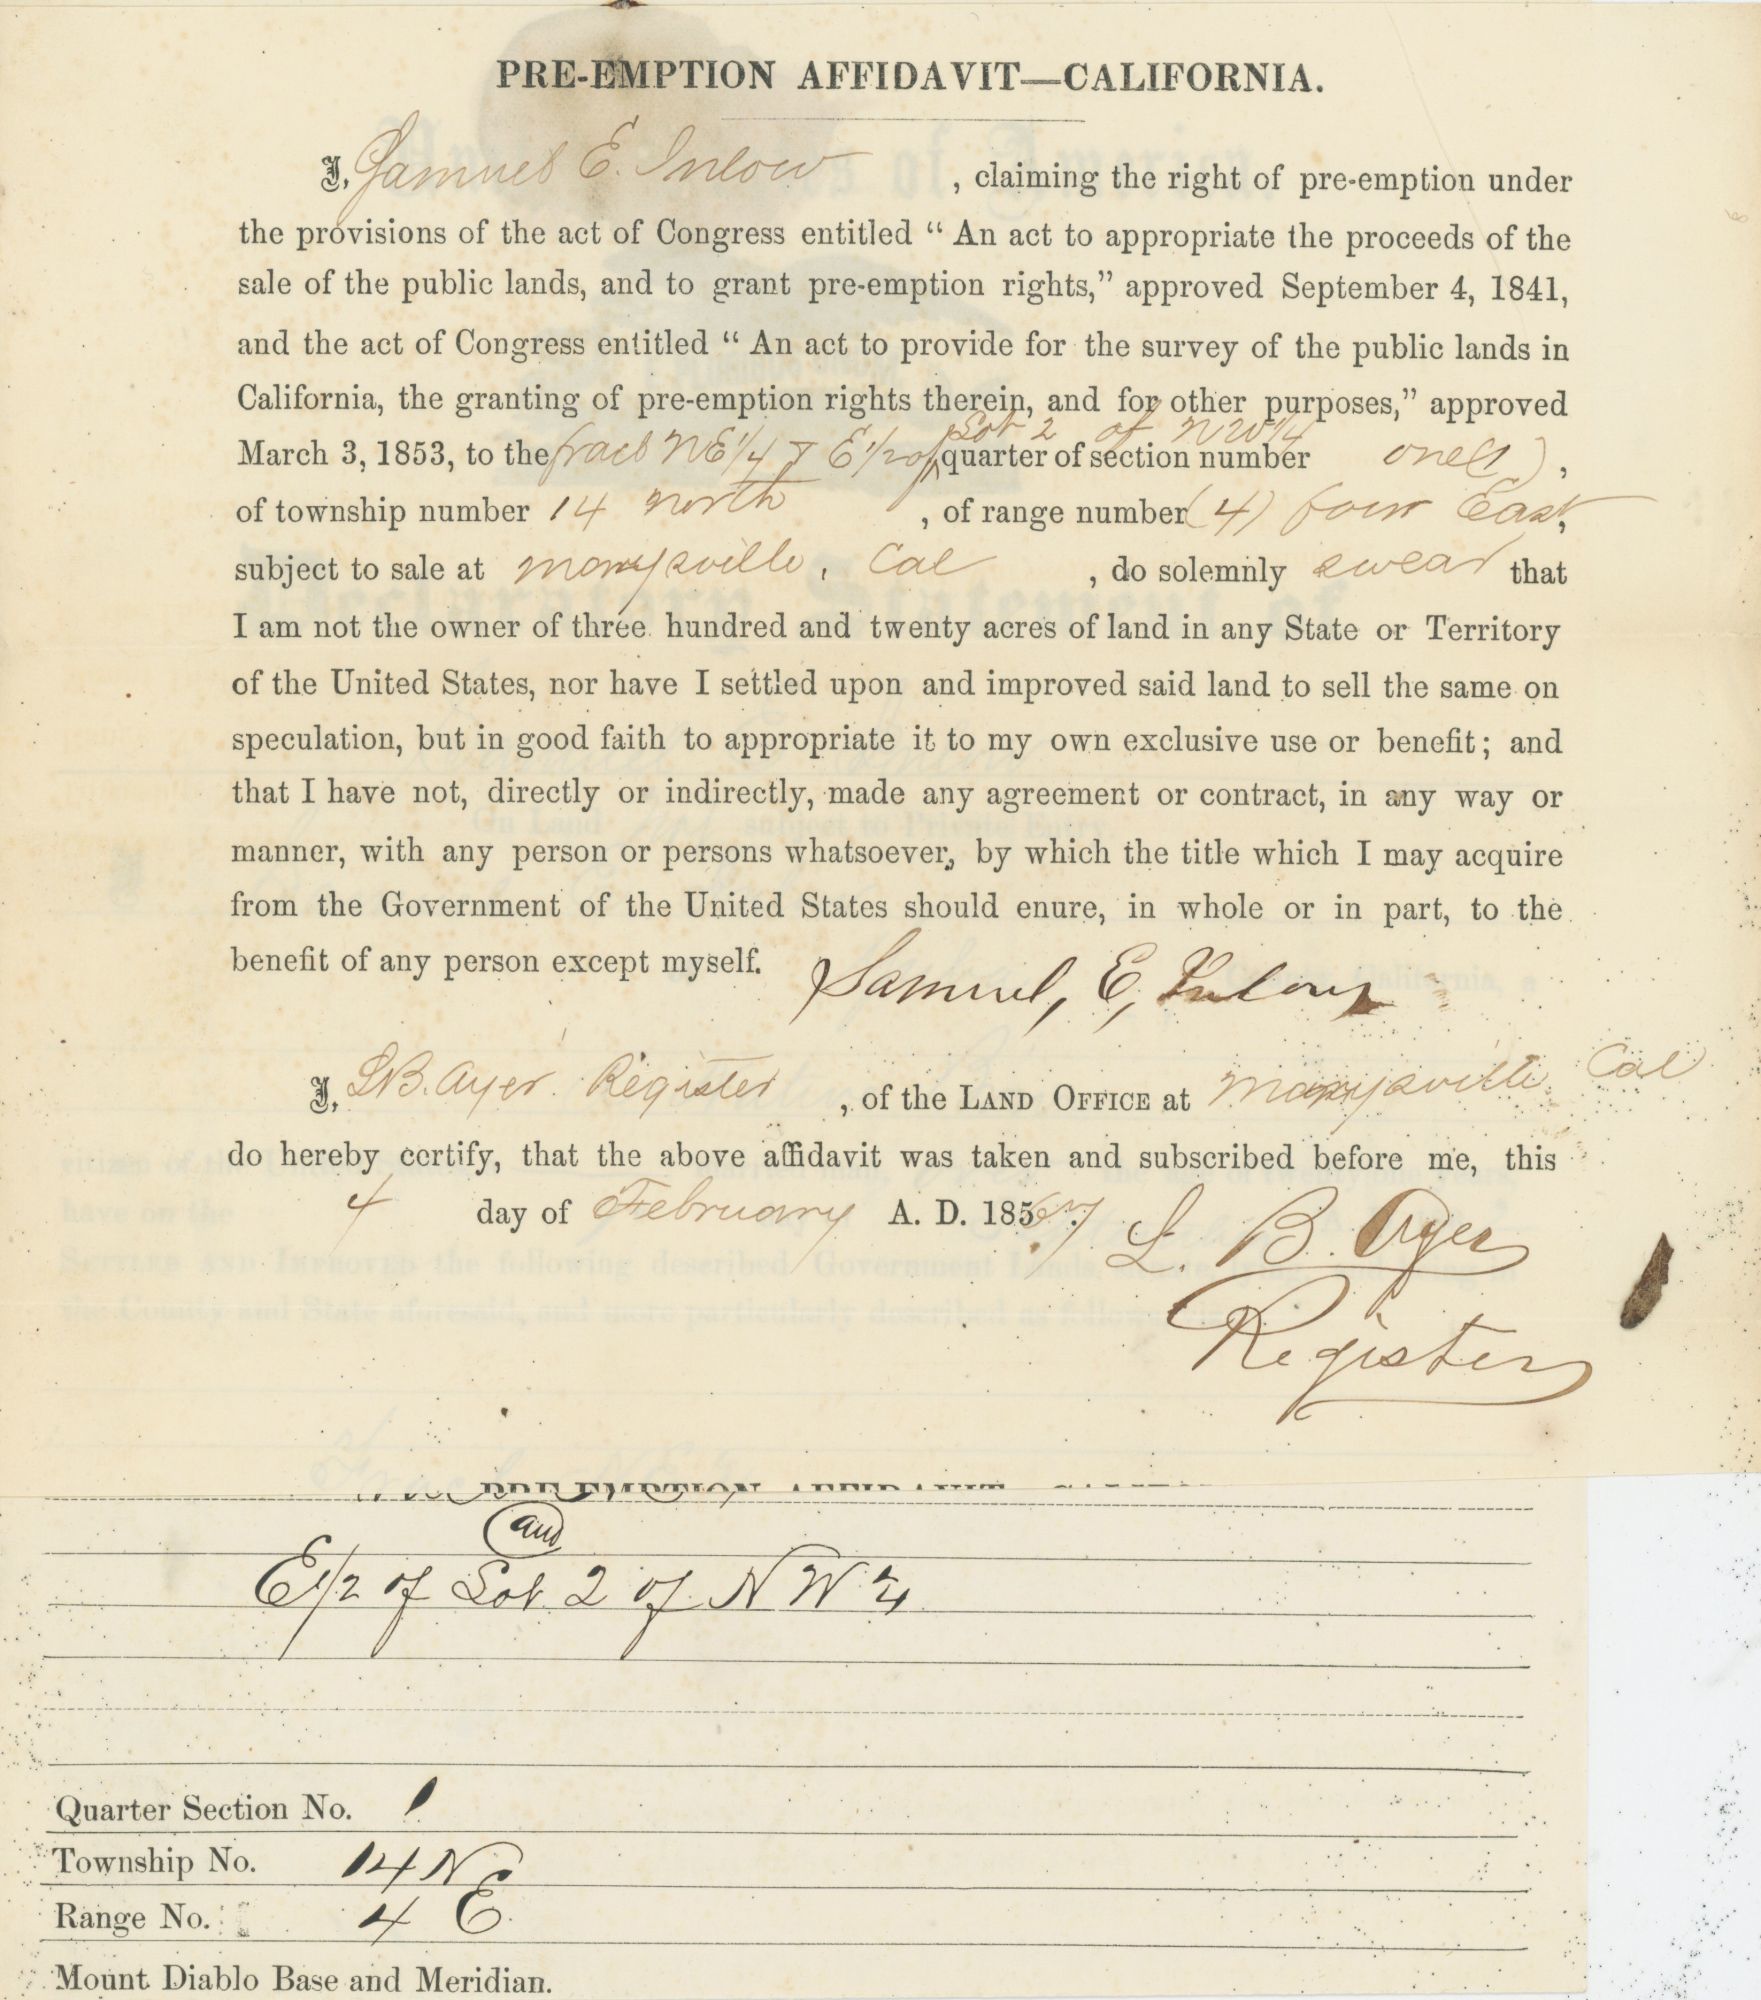 PRE-EMPTION AFFIDAVIT—CALIFORNIA.
I, Samuel E. Inlow, claiming the right of pre-emption under
the provisions of the act of Congress entitled “ An act to appropriate the proceeds of the
sale of the public lands, and to grant pre-emption rights,” approved September 4, 1841,
and the act of Congress entitled “ An act to provide for the survey of the public lands in
California, the granting of pre-emption rights therein, and for other purposes,” approved
Lot 2 of NW 1/4
March 3, 1853, to the fracl NE 1/4 & E 1/2 of quarter of section number one (1),
of township number 14 north, of range number (4) four East,
subject to sale at Marysville, Cal, do solemnly swear that
I am not the owner of three hundred and twenty acres of land in any State or Territory
of the United States, nor have I settled upon and improved said land to sell the same on
speculation, but in good faith to appropriate it to my own exclusive use or benefit; and
that I have not, directly or indirectly, made any agreement or contract, in any way or
manner, with any person or persons whatsoever, by which the title which I may acquire
from the Government of the United States should enure, in whole or in part, to the
benefit of any person except myself. Samuel, E, Inlow
I, L B. Ayer Register, of the LAND OFFICE at Marysville Cal
do hereby certify, that the above affidavit was taken and subscribed before me, this
4 day of February A. D. 1867. L. B. Ayer
Register
PRE-EMPTION AFFIDAVIT
and
E 1/2 of Lot 2 of NW 1/4
Quarter Section No. 1
Township No. 14 N
Range No. 4 E
Mount Diablo Base and Meridian.